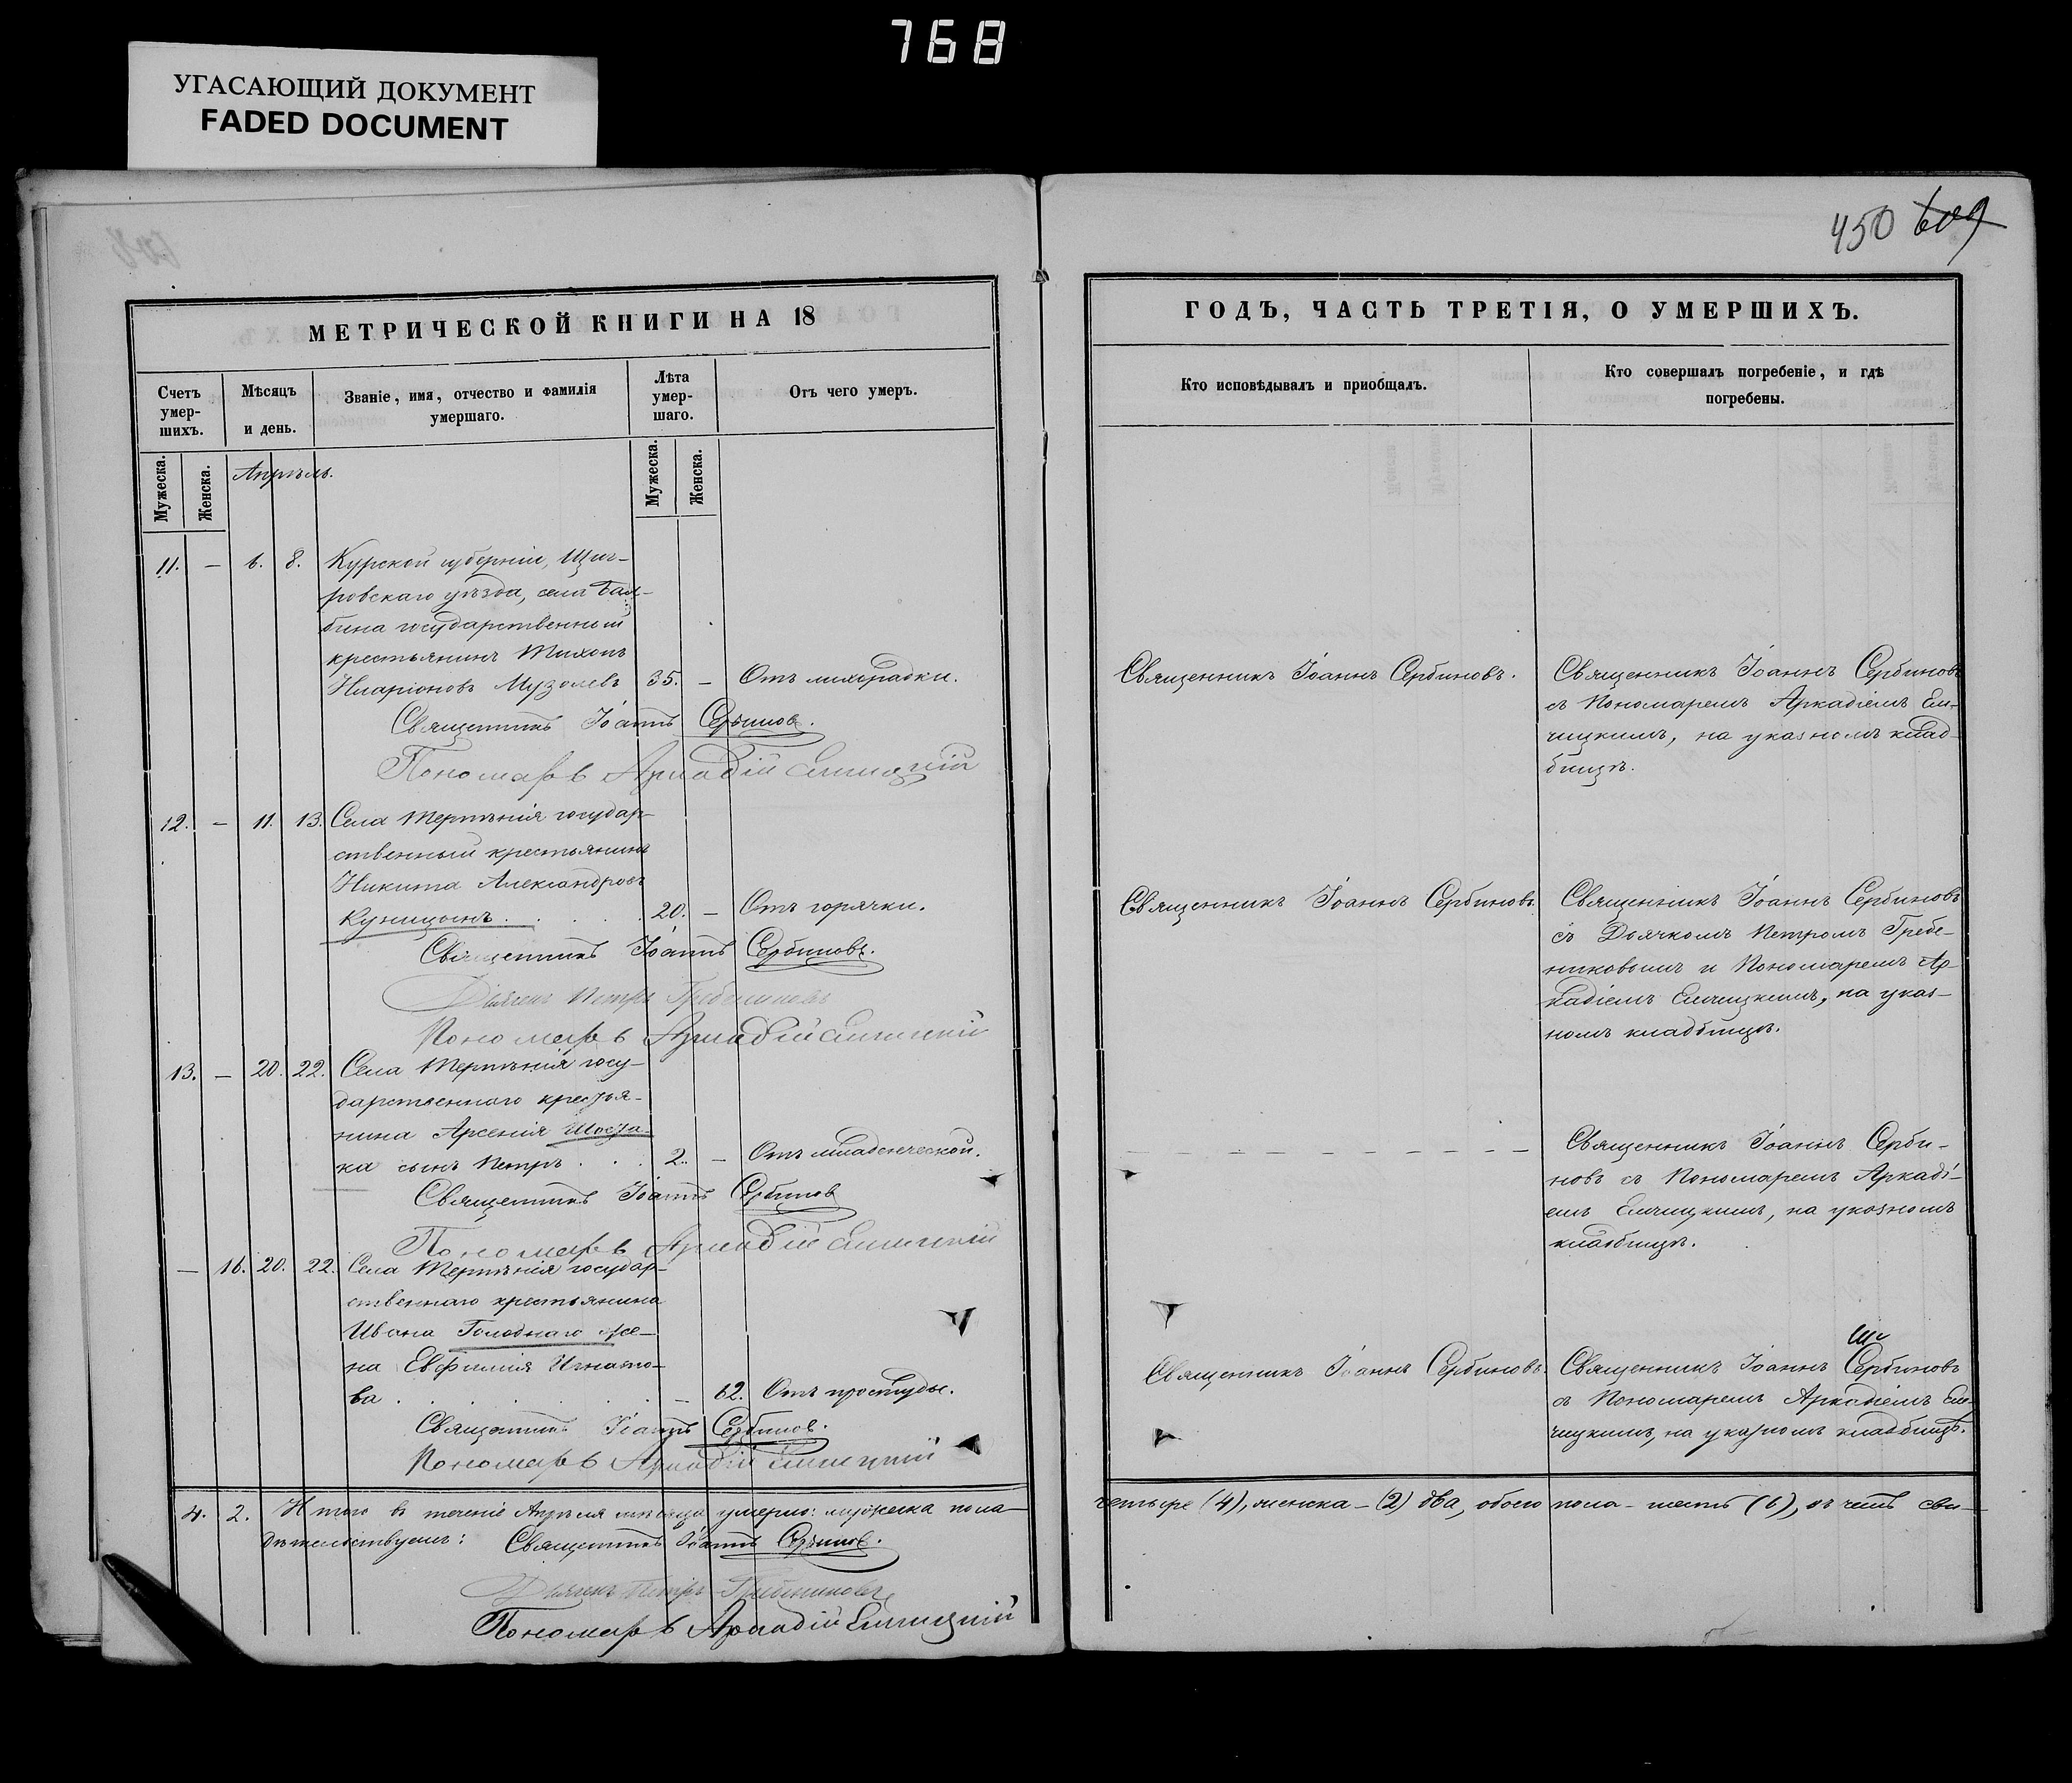 768
УГАСАЮЩИЙ ДОКУМЕНТ
FADED DOCUMENT
МЕТРИЧЕСКОЙ КНИГИ НА 18
Счетъ умер-шихъ.
Мѣсяцъ и день.
Званіе, имя, отчество и фамилія умершаго.
Лѣта умер-шаго.
Отъ чего умеръ.
Мужеска.
Женска.
Апрѣль.
Мужеска.
Женска.
11. — 6. 8. Курской губерніи, Щиг-
ровскаго уѣзда, села
бина государственный
крестьянинъ Тихонъ
Иларіоновъ 35. — Отъ лихорадки.
Священникъ Іоаннъ Сербиновъ.
Пономарь Аркадій
12. — 11. 13. Села Терпѣнія государ-
ственный крестьянинъ
Никита Александровъ
Куницынъ . . . . 20. — Отъ горячки.
Священникъ Іоаннъ Сербиновъ.
Дьячекъ Петръ Гребениковъ
Пономарь Аркадій
13. — 20. 22. Села Терпѣнія госу-
дарственнаго крестья-
нина Арсенія Шоста-
ка сынъ Петръ . . . 2. — Отъ младенческой.
Священникъ Іоаннъ Сербиновъ
Пономарь Аркадій
— 16. 20. 22. Села Терпѣнія государ-
ственнаго крестьянина
Ивана Голоднаго же-
на Евфимія Игнато-
ва . . . . — 62. Отъ простуды.
Священникъ Іоаннъ Сербиновъ.
Пономарь Аркадій
4. 2. Итого въ теченіе Апрѣля мѣсяца умерло: мужеска пола —
дѣтельствуемъ: Священникъ Іоаннъ Сербиновъ.
Дьячекъ Петръ Гребениковъ
Пономарь Аркадій
450 609
ГОДЪ, ЧАСТЬ ТРЕТІЯ, О УМЕРШИХЪ.
Кто исповѣдывалъ и приобщалъ.
Кто совершалъ погребеніе, и гдѣ погребены.
Священникъ Іоаннъ Сербиновъ.
Священникъ Іоаннъ Сербиновъ
съ Пономаремъ Аркадіемъ Ем-
чицкимъ, на указномъ клад-
бищѣ.
Священникъ Іоаннъ Сербиновъ.
Священникъ Іоаннъ Сербиновъ
съ Дьячкомъ Петромъ Гребе-
никовымъ и Пономаремъ Ар-
кадіемъ Емчицкимъ, на указ-
номъ кладбищѣ.
Священникъ Іоаннъ Серби-
новъ съ Пономаремъ Аркаді-
емъ Емчицкимъ, на указномъ
кладбищѣ.
Священникъ Іоаннъ Сербиновъ.
Священникъ Іоаннъ Сербиновъ
съ Пономаремъ Аркадіемъ Ем-
чицкимъ, на указномъ кладбищѣ.
четыре (4), женска — (2) два, обоего пола — шесть (6), въ чемъ сви-